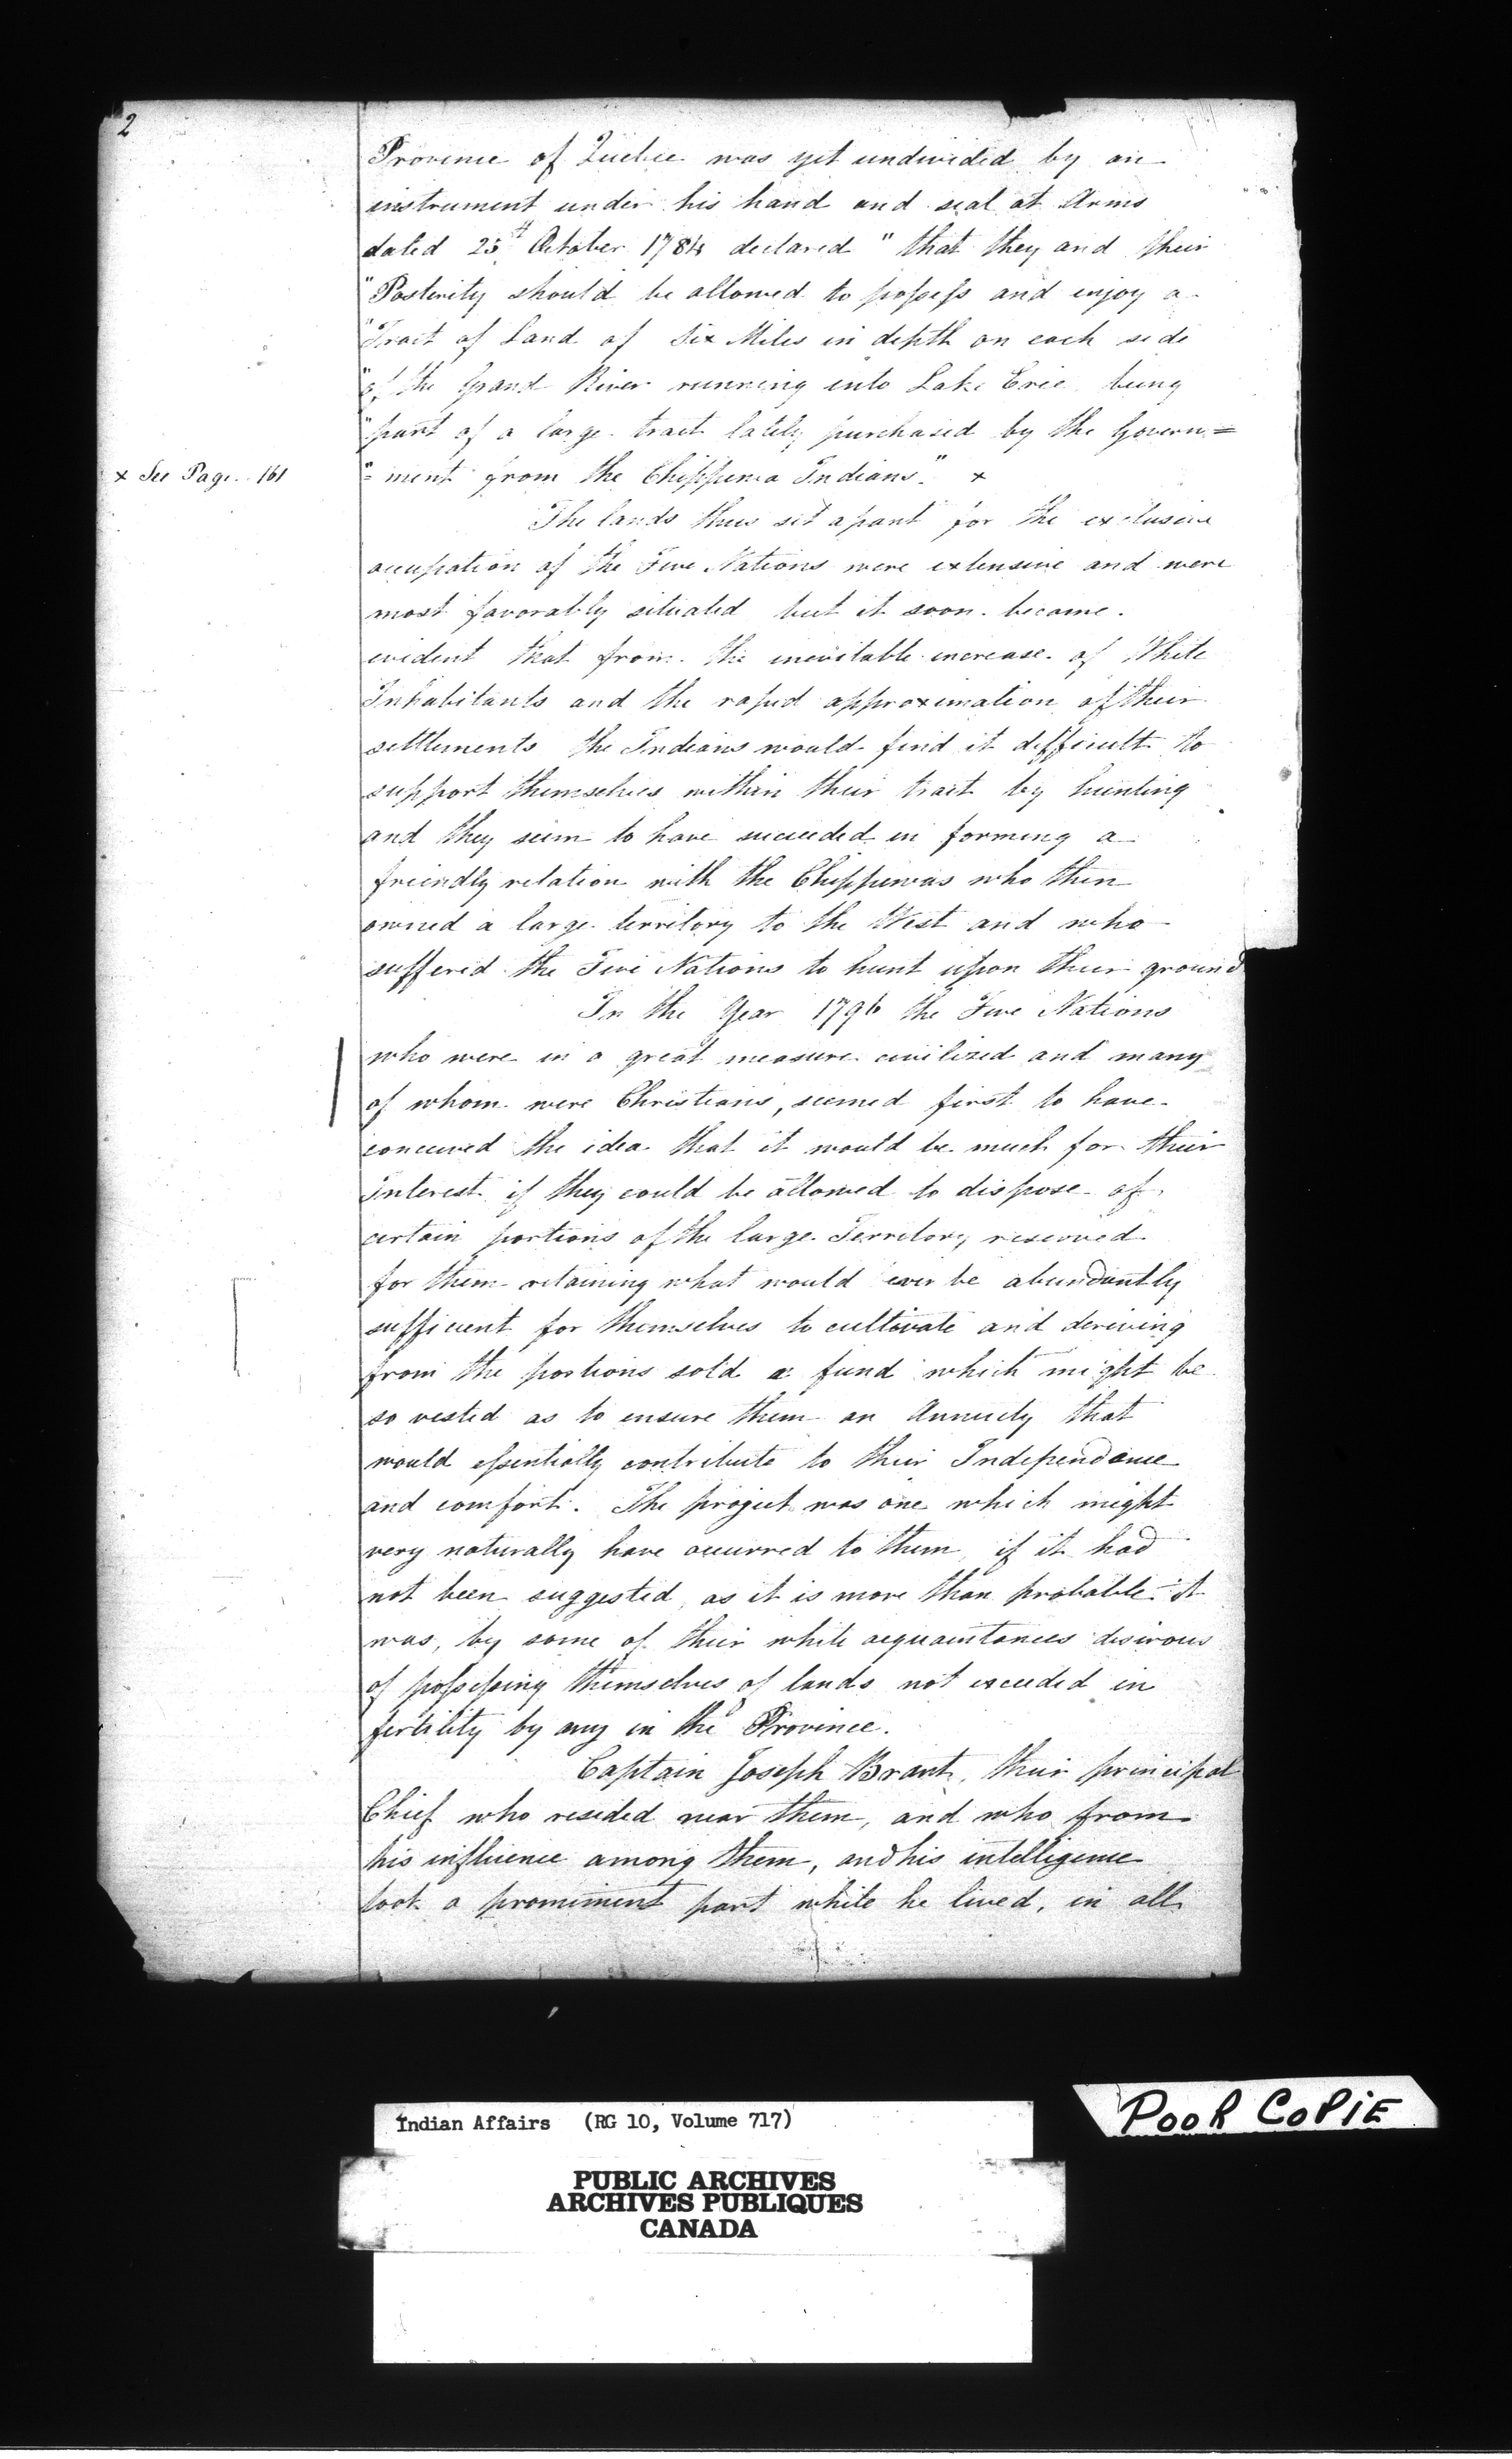 2
Province of Quebec was yet undivided by an
instrument under his hand and seal at Arms
dated 25th October 1784 declared "that they and their
"Posterity should be allowed to possess and enjoy a
"Tract of Land of Six Miles in depth on each side
"of the Grand River running into Lake Erie being
"part of a large tract lately purchased by the Govern=
x See Page 161
"=ment from the Chippewa Indians." x
The lands thus set apart for the exclusive
occupation of the Five Nations were extensive and were
most favorably situated but it soon became
evident that from the inevitable increase of White
Inhabitants and the rapid approximation of their
settlements the Indians would find it difficult to
support themselves within their tract by hunting
and they seem to have succeeded in forming a
friendly relation with the Chippewas who then
owned a large territory to the West and who
suffered the Five Nations to hunt upon their ground
In the Year 1796 the Five Nations
who were in a great measure civilized and many
of whom were Christians, seemed first to have
conceived the idea that it would be much for their
Interest if they could be allowed to dispose of
certain portions of the large Territory reserved
for them retaining what would ever be abundantly
sufficient for themselves to cultivate and deriving
from the portions sold a fund which might be
so vested as to ensure them an Annuity that
would essentially contribute to their Independance
and comfort. The project was one which might
very naturally have occurred to them, if it had
not been suggested, as it is more than probable it
was, by some of their white acquaintances desirous
of possessing themselves of lands not exceeded in
fertility by any in the Province.
Captain Joseph Brant, their principal
Chief who resided near them, and who from
his influence among them, and his intelligence
took a prominent part while he lived, in all
Indian Affairs (RG 10, Volume 717)
POOR COPIE
PUBLIC ARCHIVES
ARCHIVES PUBLIQUES
CANADA